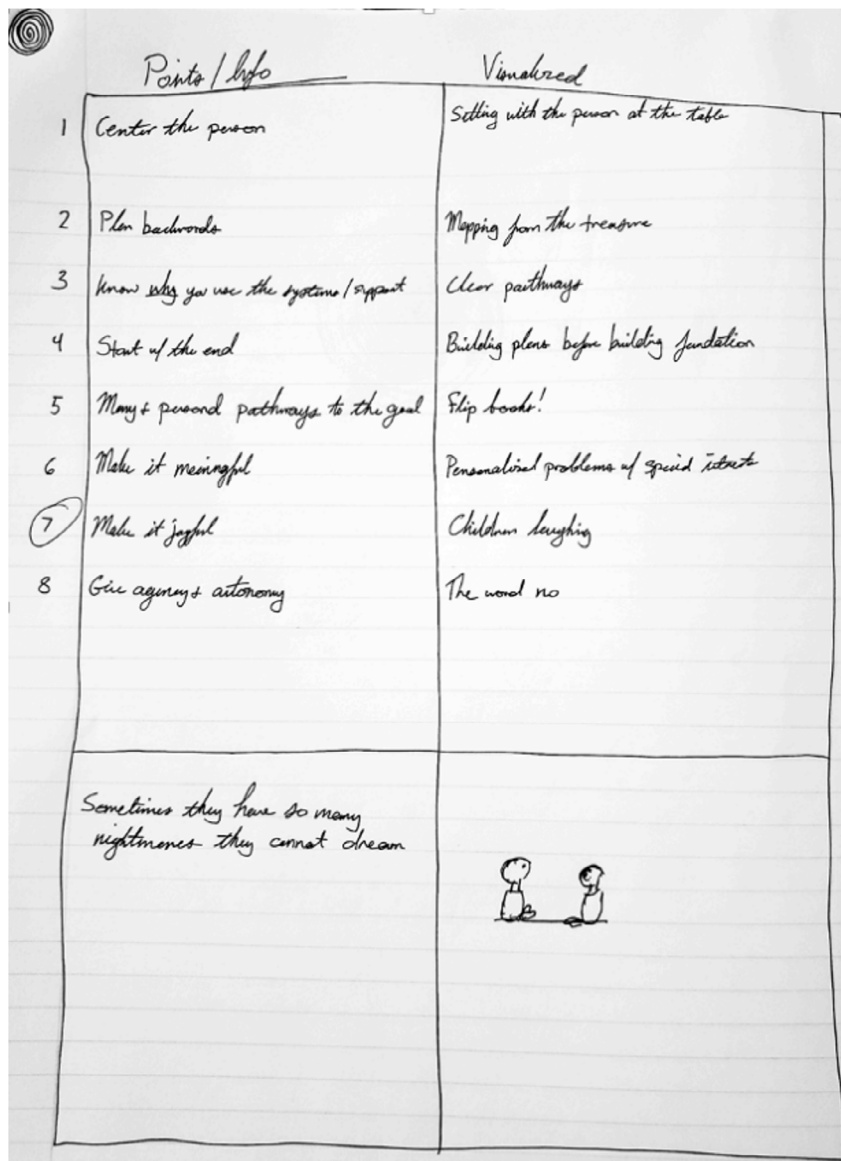 Points / Info
Visualized
1 Center the person
Sitting with the person at the table
2 Plan backwards
Mapping from the treasure
3 Know why you use the systems / support
Clear pathways
4 Start w/ the end
Building plans before building fundation
5 Many + personal pathways to the goal
Flip books!
6 Make it meaningful
Personalized problems w/ special
7 Make it joyful
Children laughing
8 Give agency + autonomy
The word no
Sometimes they have so many
nightmares they cannot dream